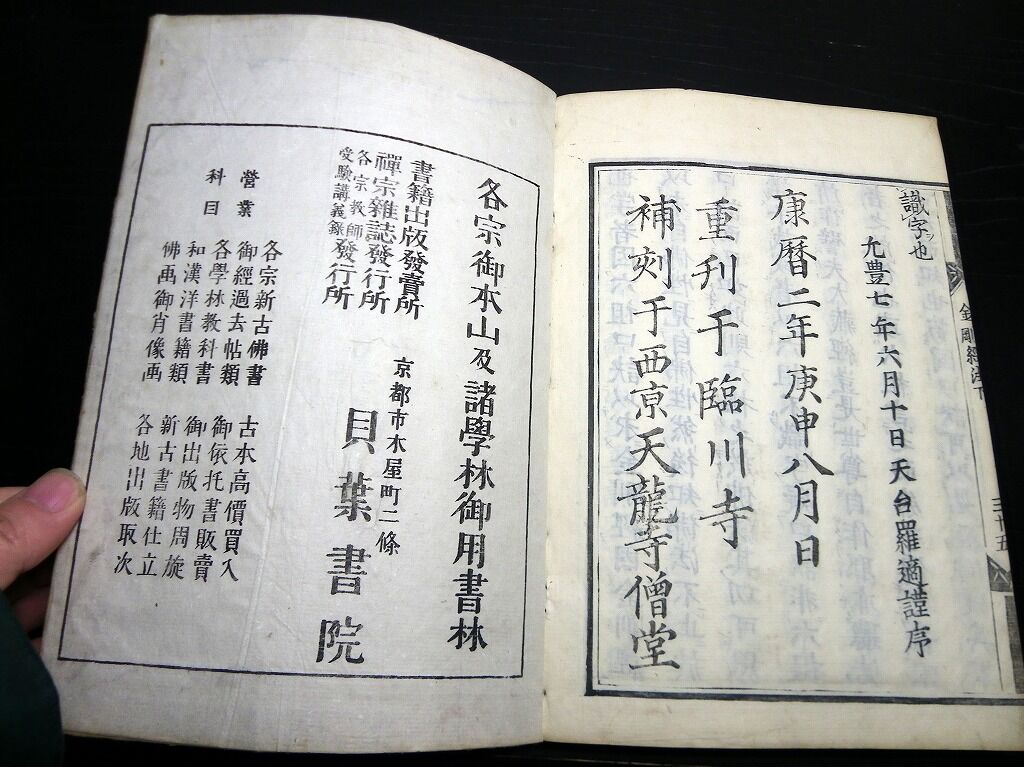 識字ヲ也
元豊七年六月十日天台羅適謹序
康暦二年庚申八月日
重刊于臨川寺
補刻于西京天龍寺僧堂
各宗御本山及諸學林御用書林
書籍出版發賣所
禪宗雜誌發行所
各宗教師
受驗講義錄發行所
京都市木屋町二條
貝葉書院
營業
科目
各宗新古佛書
御經過去帖類
各學林教科書
和漢洋書籍類
佛画御肖像画
古本高價買入
御依托書販賣
御出版物周旋
新古書籍仕立
各地出版取次